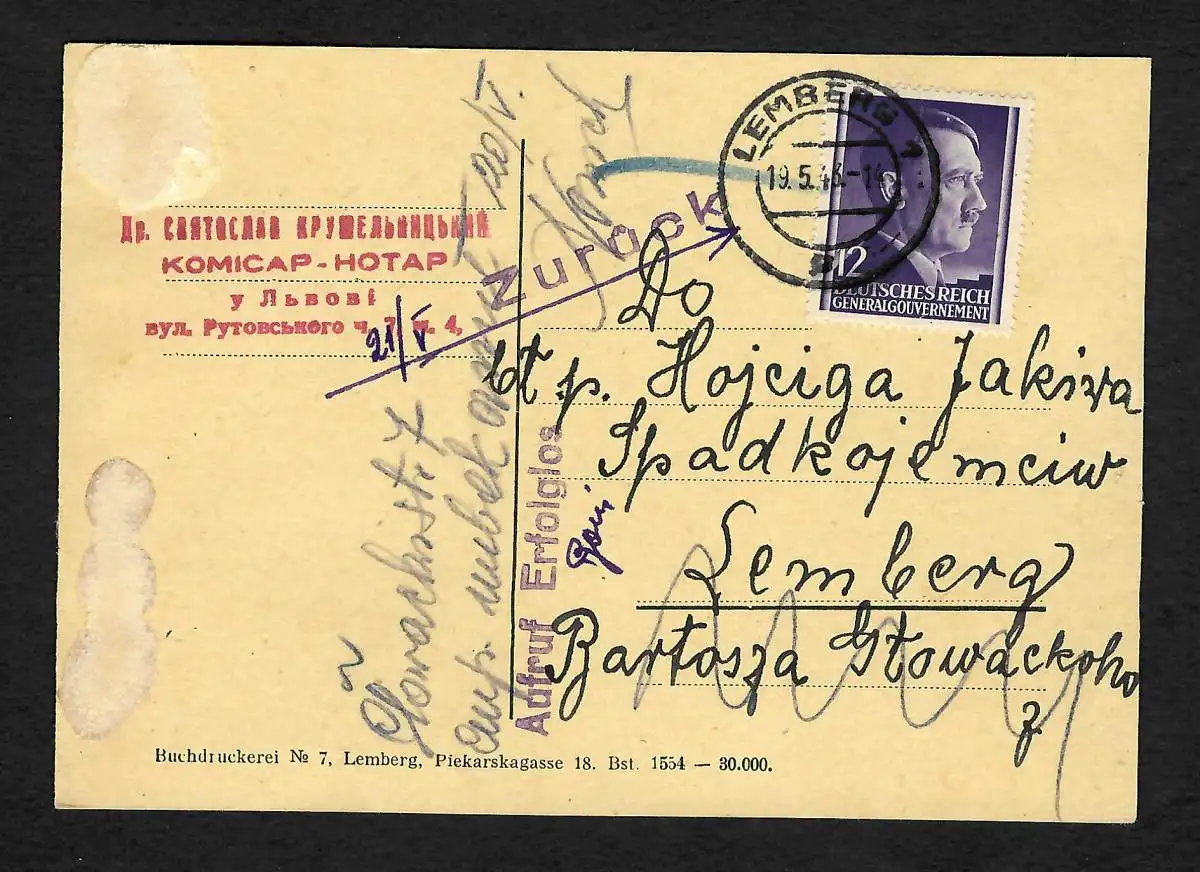 Др. СВЯТОСЛАВ КРУШЕЛЬНИЦЬКИЙ
КОМІСАР-НОТАР
у Львові
вул. Рутовського ч. 7, м. 4,
LEMBERG 1
19.5.43.-14
12
DEUTSCHES REICH
GENERALGOUVERNEMENT
Zurück
21/V
20/V.
Aufruf Erfolglos
Do
Hojciga Jakiva
Spadkojemciw
Lemberg
Bartosza Głowackoho
7
Buchdruckerei № 7, Lemberg, Piekarskagasse 18. Bst. 1554 — 30.000.